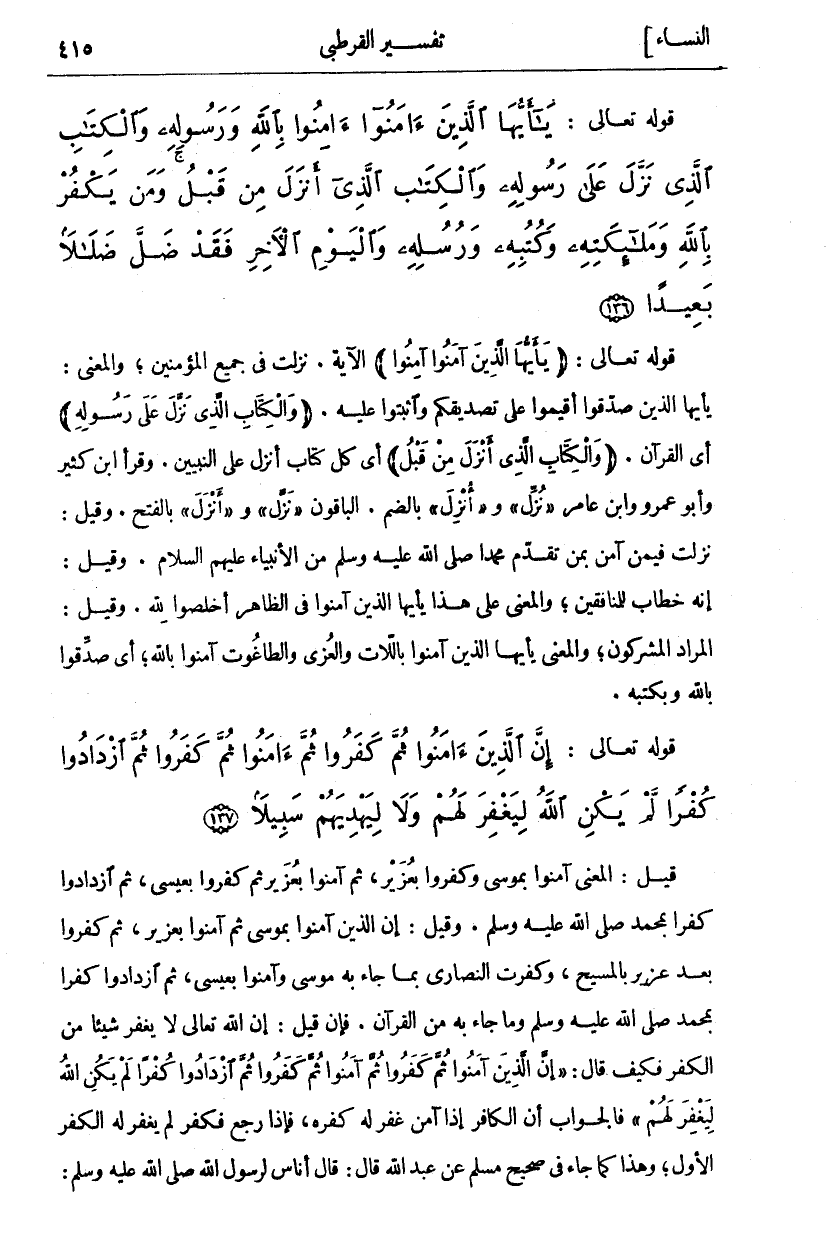 النساء] تفسير القرطبى ٤١٥
قوله تعالى : يَـٰٓأَيُّهَا ٱلَّذِينَ ءَامَنُوٓا۟ ءَامِنُوا۟ بِٱللَّهِ وَرَسُولِهِۦ وَٱلْكِتَـٰبِ
ٱلَّذِى نَزَّلَ عَلَىٰ رَسُولِهِۦ وَٱلْكِتَـٰبِ ٱلَّذِىٓ أَنزَلَ مِن قَبْلُ ۚ وَمَن يَكْفُرْ
بِٱللَّهِ وَمَلَـٰٓئِكَتِهِۦ وَكُتُبِهِۦ وَرُسُلِهِۦ وَٱلْيَوْمِ ٱلْـَٔاخِرِ فَقَدْ ضَلَّ ضَلَـٰلًۢا
بَعِيدًا ﴿١٣٦﴾
قوله تعالى : ﴿ يَأَيُّهَا الَّذِينَ آمَنُوا آمِنُوا ﴾ الآية . نزلت فى جميع المؤمنين ؛ والمعنى :
يأيها الذين صدّقوا أقيموا على تصديقكم وآثبتوا عليه . ﴿ وَالْكِتَابِ الَّذِى نَزَّلَ عَلَى رَسُولِهِ ﴾
أى القرآن . ﴿ وَالْكِتَابِ الَّذِى أَنْزَلَ مِنْ قَبْلُ ﴾ أى كل كتاب أنزل على النبيين . وقرأ ابن كثير
وأبو عمرو وابن عامر «نُزِّل» و «أُنْزِلَ» بالضم . الباقون «نَزَّل» و «أَنْزَلَ» بالفتح . وقيل :
نزلت فيمن آمن بمن تقدّم محمدا صلى الله عليه وسلم من الأنبياء عليهم السلام . وقيل :
إنه خطاب للمنافقين ؛ والمعنى على هذا يأيها الذين آمنوا فى الظاهر أخلصوا لله . وقيل :
المراد المشركون؛ والمعنى يأيها الذين آمنوا باللّات والعُزى والطاغُوت آمنوا بالله؛ أى صدِّقوا
بالله وبكتبه .
قوله تعالى : إِنَّ ٱلَّذِينَ ءَامَنُوا۟ ثُمَّ كَفَرُوا۟ ثُمَّ ءَامَنُوا۟ ثُمَّ كَفَرُوا۟ ثُمَّ ٱزْدَادُوا۟
كُفْرًا لَّمْ يَكُنِ ٱللَّهُ لِيَغْفِرَ لَهُمْ وَلَا لِيَهْدِيَهُمْ سَبِيلًۢا ﴿١٣٧﴾
قيل : المعنى آمنوا بموسى وكفروا بعُزَيْر، ثم آمنوا بعُزَير ثم كفروا بعيسى، ثم آزدادوا
كفرا بمحمد صلى الله عليه وسلم . وقيل : إن الذين آمنوا بموسى ثم آمنوا بعزير، ثم كفروا
بعد عزير بالمسيح ، وكفرت النصارى بما جاء به موسى وآمنوا بعيسى، ثم آزدادوا كفرا
بمحمد صلى الله عليه وسلم وما جاء به من القرآن . فإن قيل : إن الله تعالى لا يغفر شيئا من
الكفر فكيف قال: «إنَّ الَّذِينَ آمَنُوا ثُمَّ كَفَرُوا ثُمَّ آمَنُوا ثُمَّ كَفَرُوا ثُمَّ آزْدَادُوا كُفْرًا لَمْ يَكُنِ اللهُ
لِيَغْفِرَ لَهُمْ » فالجواب أن الكافر إذا آمن غفر له كفره، فإذا رجع فكفر لم يغفر له الكفر
الأول؛ وهذا كما جاء فى صحيح مسلم عن عبد الله قال: قال أناس لرسول الله صلى الله عليه وسلم: